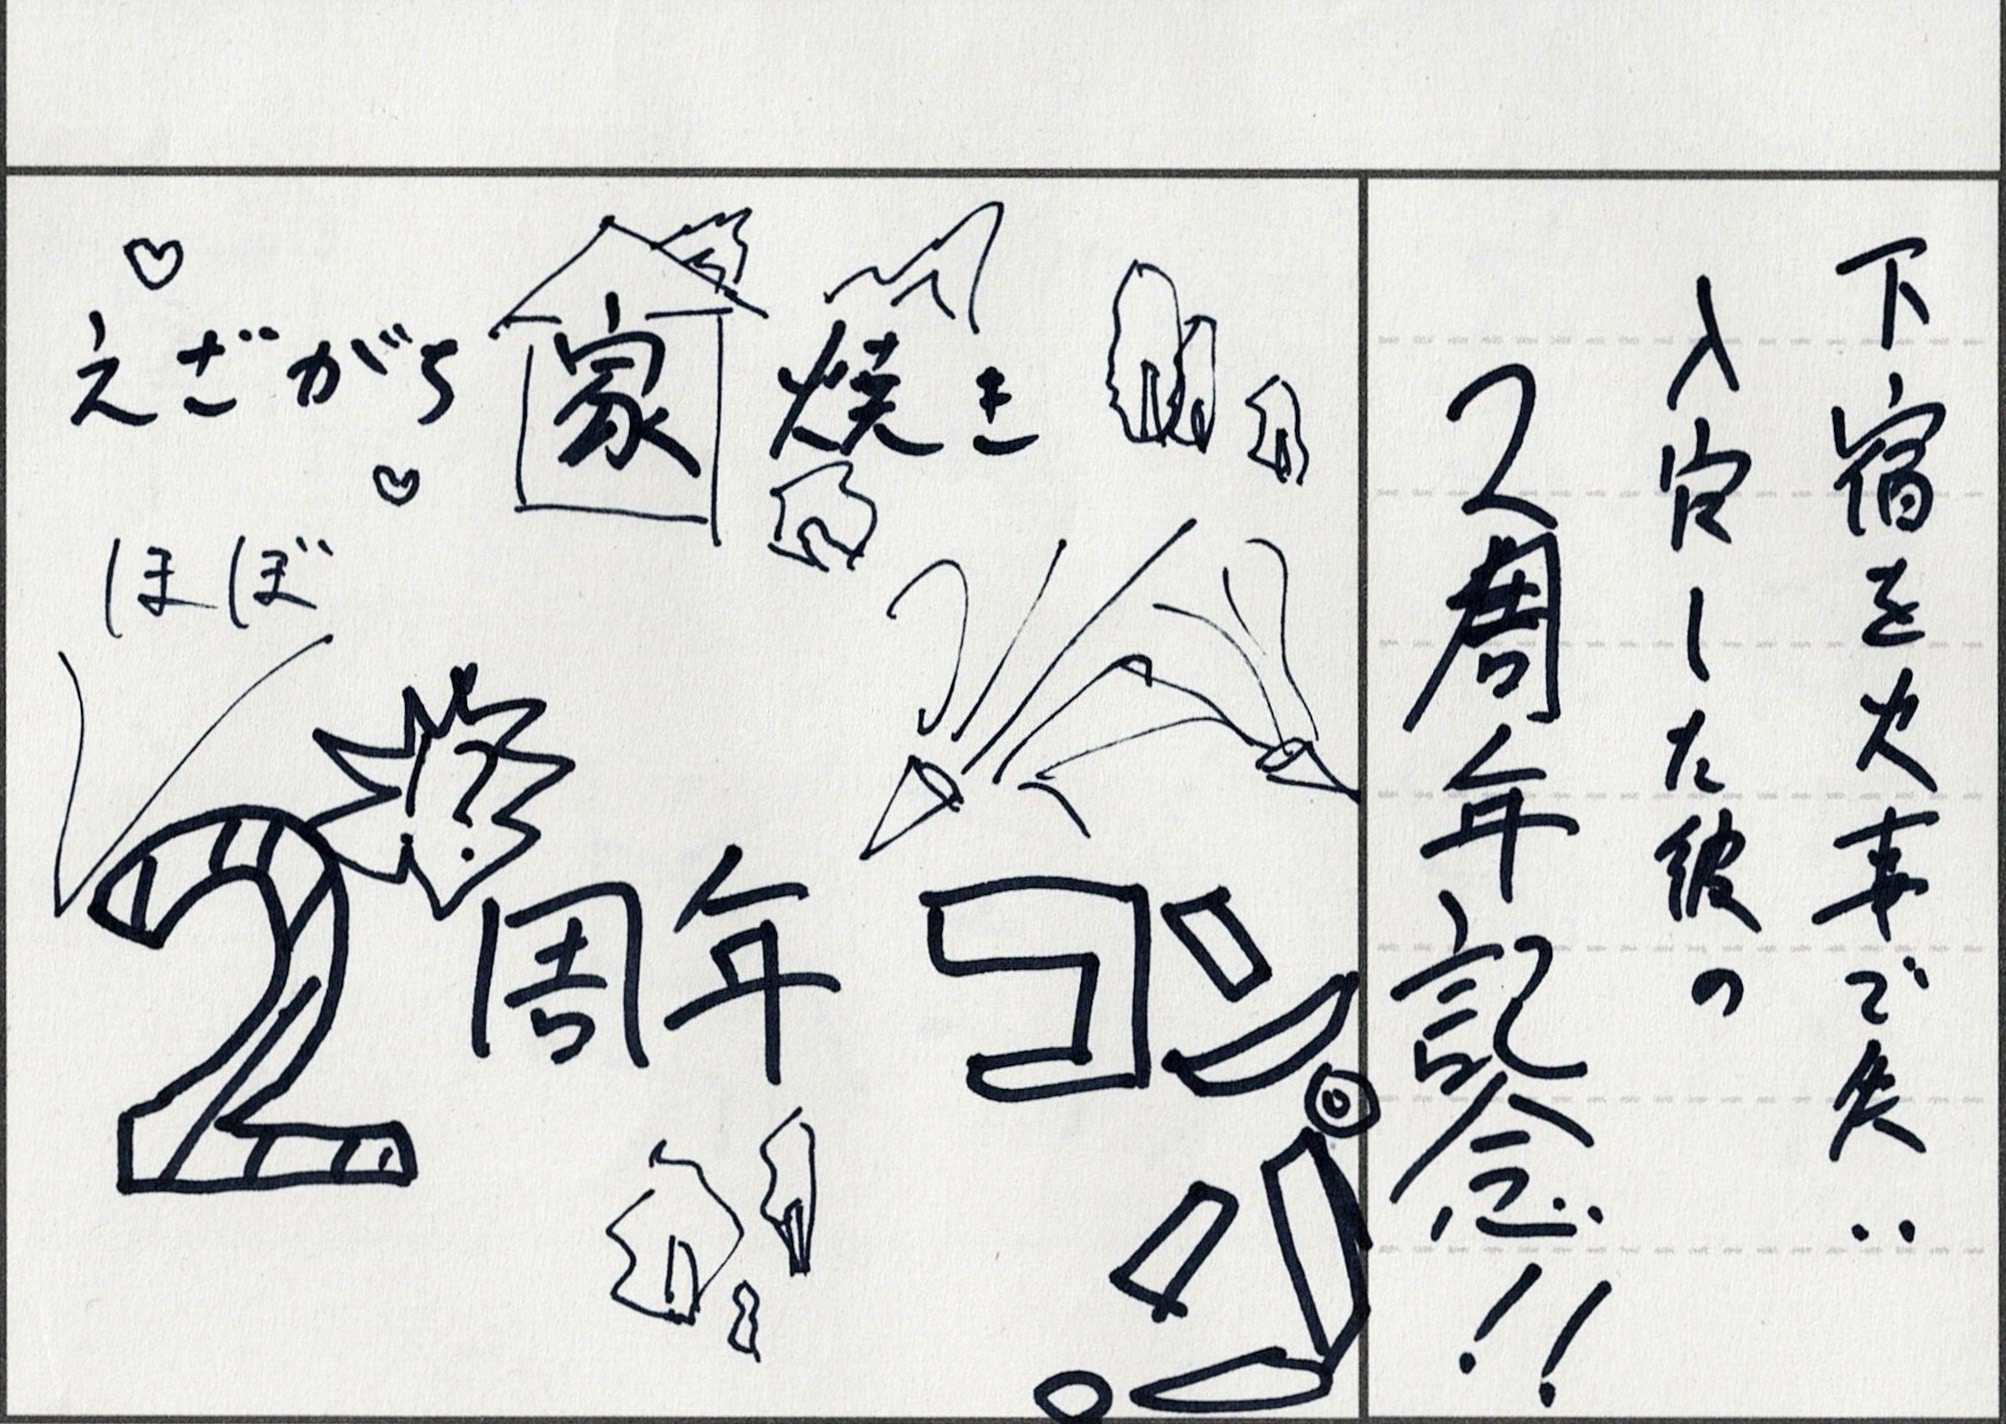 下宿を火事で失い
入官した彼の
2周年記念!!
えざがち家焼き
ほぼ
2周年コンパ